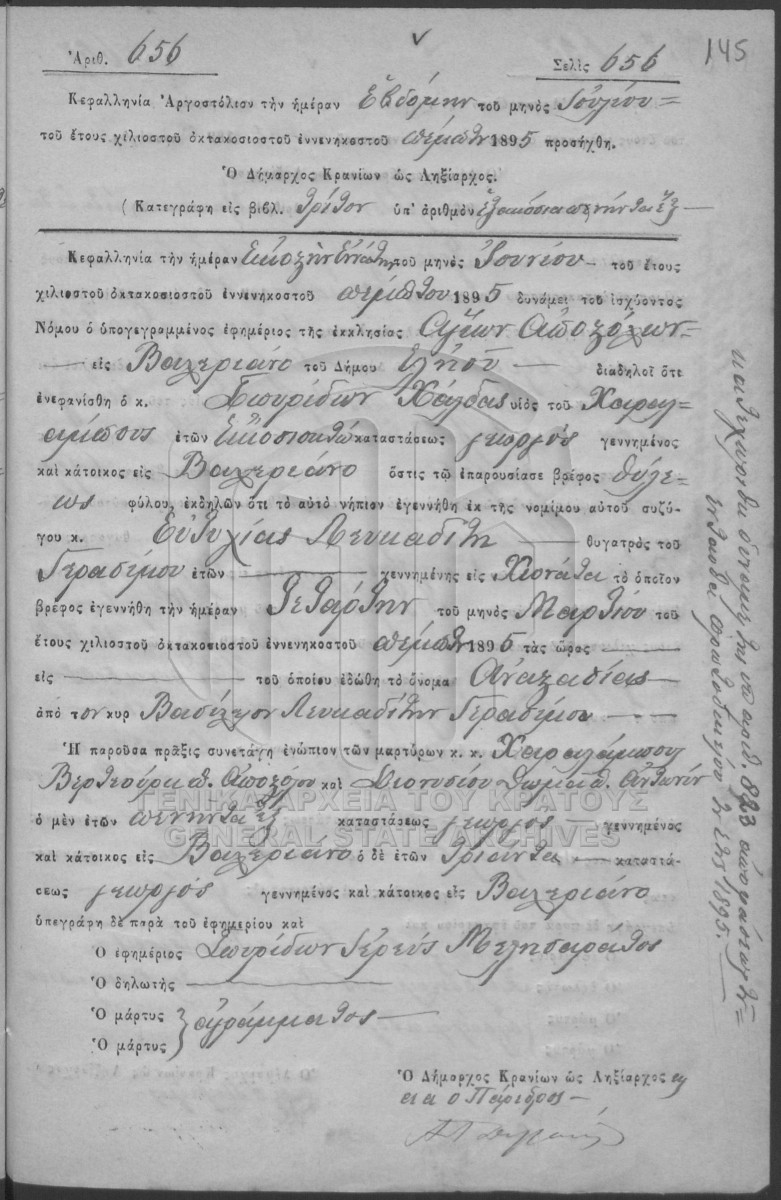 145
Ἀριθ. 656 Σελὶς 656
Κεφαλληνία Ἀργοστόλιον τὴν ἡμέραν Ἑβδόμην τοῦ μηνὸς Ἰουλίου
τοῦ ἔτους χιλιοστοῦ ὀκτακοσιοστοῦ ἐννενηκοστοῦ πέμπτου 1895 προσήχθη.
Ὁ Δήμαρχος Κρανίων ὡς Ληξίαρχος.
(Κατεγράφη εἰς βιβλ. τρίτον ὑπ' ἀριθμὸν ἑξακόσια πενῆντα ἕξ
Κεφαλληνία τὴν ἡμέραν Εἰκοστὴν Ἐνάτην τοῦ μηνὸς Ἰουνίου τοῦ ἔτους
χιλιοστοῦ ὀκτακοσιοστοῦ ἐννενηκοστοῦ πέμπτου 1895 δυνάμει τοῦ ἰσχύοντος
Νόμου ὁ ὑπογεγραμμένος ἐφημέριος τῆς ἐκκλησίας Ἁγίων Ἀποστόλων
εἰς Βαλεριάνο τοῦ Δήμου διαδηλοῖ ὅτι
ἐνεφανίσθη ὁ κ. Σπυρίδων Χάλδας υἱὸς τοῦ Χαραλ-
άμπους ἐτῶν Εἰκοσιοκτὼ καταστάσεως γεωργός γεννημένος
καὶ κάτοικος εἰς Βαλεριάνο ὅστις τῷ ἐπαρουσίασε βρέφος θήλε-
ως φύλου, ἐκδηλῶν ὅτι τὸ αὐτὸ νήπιον ἐγεννήθη ἐκ τῆς νομίμου αὐτοῦ συζύ-
γου κ. Εὐτυχίας Λευκαδίτη θυγατρὸς τοῦ
Γερασίμου ἐτῶν γεννημένης εἰς Χιονάτα τὸ ὁποῖον
βρέφος ἐγεννήθη τὴν ἡμέραν Τετάρτην τοῦ μηνὸς Μαρτίου τοῦ
ἔτους χιλιοστοῦ ὀκτακοσιοστοῦ ἐννενηκοστοῦ πέμπτου 1895 τὰς ὥρας
εἰς τοῦ ὁποίου ἐδώθη τὸ ὄνομα Ἀναστασίας
ἀπὸ τον κυρ Βασίλειον Λευκαδίτην Γερασίμου
Ἡ παροῦσα πρᾶξις συνετάγη ἐνώπιον τῶν μαρτύρων κ. κ. Χαραλάμπους
Ἀποστόλου καὶ Διονυσίου Ἀντωνίου
ὁ μὲν ἐτῶν πενῆντα ἕξ καταστάσεως γεωργὸς γεννημένος
καὶ κάτοικος εἰς Βαλεριάνο ὁ δὲ ἐτῶν τριάντα καταστά-
σεως γεωργός γεννημένος καὶ κάτοικος εἰς Βαλεριάνο
ὑπεγράφη δὲ παρὰ τοῦ ἐφημερίου καὶ
Ὁ ἐφημέριος Σπυρίδων Ἱερεὺς Μελισσαρᾶτος
Ὁ δηλωτὴς
Ὁ μάρτυς
Ὁ μάρτυς } ἀγράμματος
Ὁ Δήμαρχος Κρανίων ὡς Ληξίαρχος
ὁ Πάρεδρος
κατεχωρίσθη δυνάμει τῆς ὑπ' ἀριθ. 823 ἀποφάσεως τοῦ
ἐνταῦθα Πρωτοδικείου τοῦ ἔτους 1895.
ΓΕΝΙΚΑ ΑΡΧΕΙΑ ΤΟΥ ΚΡΑΤΟΥΣ
GENERAL STATE ARCHIVES